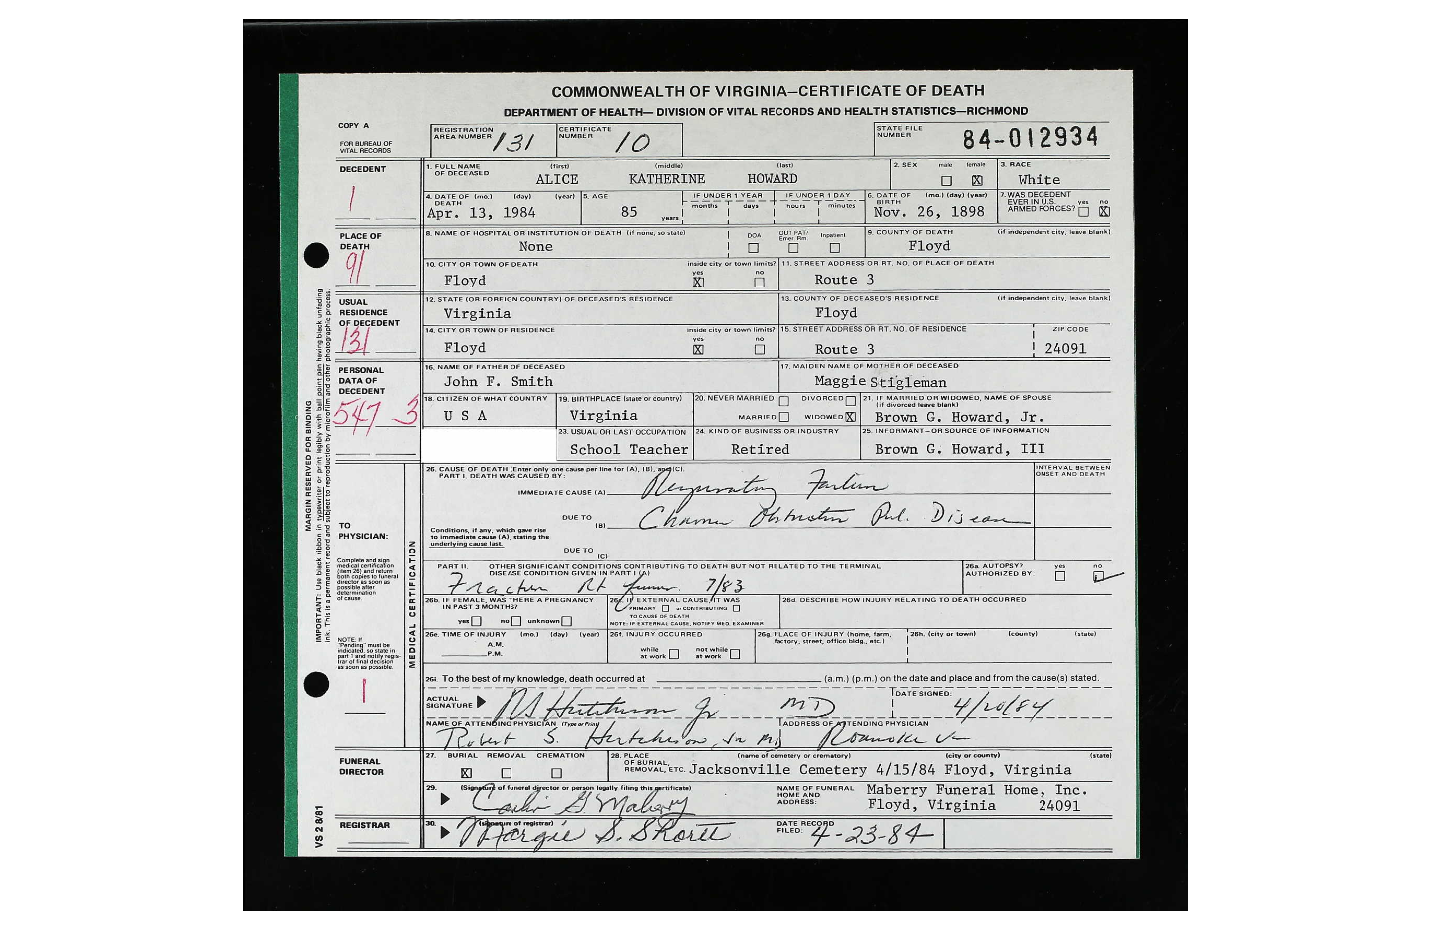 COMMONWEALTH OF VIRGINIA—CERTIFICATE OF DEATH
DEPARTMENT OF HEALTH— DIVISION OF VITAL RECORDS AND HEALTH STATISTICS—RICHMOND
COPY A
FOR BUREAU OF
VITAL RECORDS
REGISTRATION AREA NUMBER 131 CERTIFICATE NUMBER 10 STATE FILE NUMBER 84-012934
DECEDENT
1
1. FULL NAME OF DECEASED (first) (middle) (last) 2. SEX male female 3. RACE
ALICE KATHERINE HOWARD ☐ ☒ White
4. DATE OF DEATH (mo.) (day) (year) 5. AGE IF UNDER 1 YEAR months days IF UNDER 1 DAY hours minutes 6. DATE OF BIRTH (mo.) (day) (year) 7. WAS DECEDENT EVER IN U.S. ARMED FORCES? yes ☐ no ☒
Apr. 13, 1984 85 years Nov. 26, 1898
PLACE OF
DEATH
91
8. NAME OF HOSPITAL OR INSTITUTION OF DEATH (if none, so state) DOA OUT PAT/ Emer. Rm. Inpatient 9. COUNTY OF DEATH (if independent city, leave blank)
None ☐ ☐ ☐ Floyd
10. CITY OR TOWN OF DEATH inside city or town limits? yes no 11. STREET ADDRESS OR RT. NO. OF PLACE OF DEATH
Floyd ☒ ☐ Route 3
USUAL
RESIDENCE
OF DECEDENT
131
12. STATE (OR FOREIGN COUNTRY) OF DECEASED'S RESIDENCE 13. COUNTY OF DECEASED'S RESIDENCE (if independent city, leave blank)
Virginia Floyd
14. CITY OR TOWN OF RESIDENCE inside city or town limits? yes no 15. STREET ADDRESS OR RT. NO. OF RESIDENCE ZIP CODE
Floyd ☒ ☐ Route 3 24091
PERSONAL
DATA OF
DECEDENT
547 3
16. NAME OF FATHER OF DECEASED 17. MAIDEN NAME OF MOTHER OF DECEASED
John F. Smith Maggie Stigleman
18. CITIZEN OF WHAT COUNTRY 19. BIRTHPLACE (state or country) 20. NEVER MARRIED ☐ DIVORCED ☐ MARRIED ☐ WIDOWED ☒ 21. IF MARRIED OR WIDOWED, NAME OF SPOUSE (if divorced leave blank)
U S A Virginia Brown G. Howard, Jr.
23. USUAL OR LAST OCCUPATION 24. KIND OF BUSINESS OR INDUSTRY 25. INFORMANT—OR SOURCE OF INFORMATION
School Teacher Retired Brown G. Howard, III
MARGIN RESERVED FOR BINDING
IMPORTANT: Use black ribbon in typewriter or print legibly with ball point pen having black unfading
ink. This is a permanent record and subject to reproduction by microfilm and other photographic process.
TO
PHYSICIAN:
Complete and sign
medical certification
(item 26) and return
both copies to funeral
director as soon as
possible after
determination
of cause.
NOTE: If
"Pending" must be
indicated, so state in
part 1 and notify regis-
trar of final decision
as soon as possible.
1
MEDICAL CERTIFICATION
26. CAUSE OF DEATH (Enter only one cause per line for (A), (B), and (C). INTERVAL BETWEEN ONSET AND DEATH
PART I. DEATH WAS CAUSED BY:
IMMEDIATE CAUSE (A) Respiratory Failure
DUE TO (B) Chronic Obstructive Pul. Disease
Conditions, if any, which gave rise
to immediate cause (A), stating the
underlying cause last.
DUE TO (C)
PART II. OTHER SIGNIFICANT CONDITIONS CONTRIBUTING TO DEATH BUT NOT RELATED TO THE TERMINAL DISEASE CONDITION GIVEN IN PART I (A) 26a. AUTOPSY? AUTHORIZED BY yes ☐ no ☑
Fracture Rt femur 7/83
26b. IF FEMALE, WAS THERE A PREGNANCY IN PAST 3 MONTHS? yes ☐ no ☐ unknown ☐
26c. IF EXTERNAL CAUSE, IT WAS PRIMARY ☐ or CONTRIBUTING ☐ TO CAUSE OF DEATH
NOTE: IF EXTERNAL CAUSE, NOTIFY MED. EXAMINER
26d. DESCRIBE HOW INJURY RELATING TO DEATH OCCURRED
26e. TIME OF INJURY (mo.) (day) (year) A.M. P.M.
26f. INJURY OCCURRED while at work ☐ not while at work ☐
26g. PLACE OF INJURY (home, farm, factory, street, office bldg., etc.)
26h. (city or town) (county) (state)
26i. To the best of my knowledge, death occurred at (a.m.) (p.m.) on the date and place and from the cause(s) stated.
ACTUAL SIGNATURE RS Hutcheson Jr MD DATE SIGNED: 4/20/84
NAME OF ATTENDING PHYSICIAN (Type or Print) ADDRESS OF ATTENDING PHYSICIAN
Robert S. Hutcheson, Jr MD Roanoke Va
FUNERAL
DIRECTOR
27. BURIAL ☒ REMOVAL ☐ CREMATION ☐
28. PLACE OF BURIAL, REMOVAL, ETC. (name of cemetery or crematory) (city or county) (state)
Jacksonville Cemetery 4/15/84 Floyd, Virginia
29. (Signature of funeral director or person legally filing this certificate)
NAME OF FUNERAL HOME AND ADDRESS: Maberry Funeral Home, Inc.
Floyd, Virginia 24091
G Maberry
REGISTRAR
30. (signature of registrar) Margie S. Shortt
DATE RECORD FILED: 4-23-84
VS 2 8/81